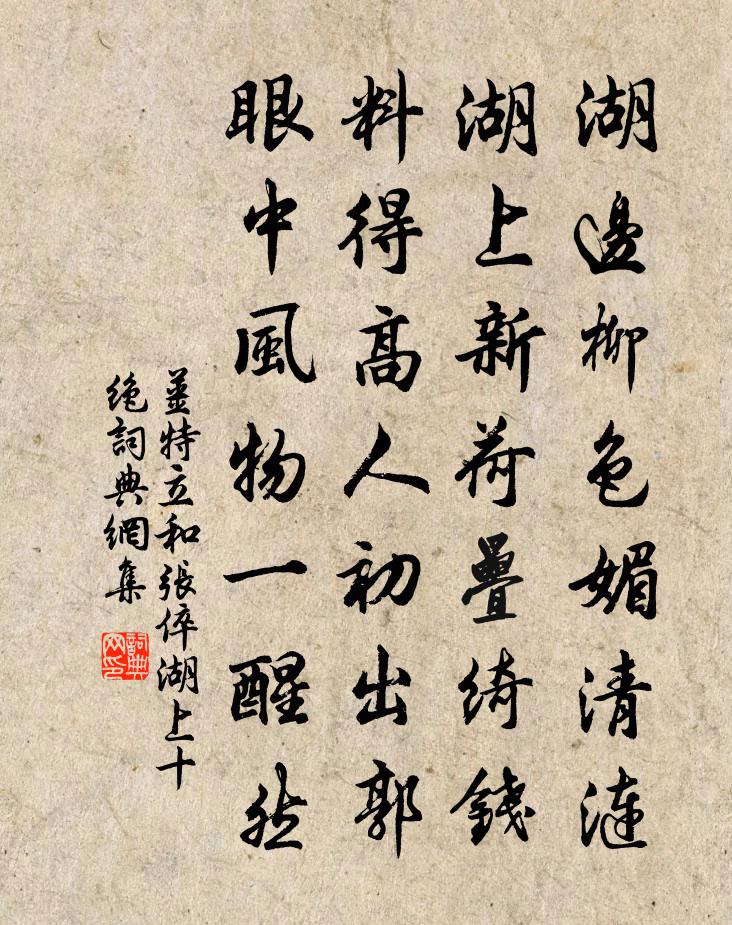 湖邊柳色媚清漣
湖上新荷疊綺錢
料得高人初出郭
眼中風物一醒然
薑特立和張倅湖上十
絕詞典網集
詞典
网印